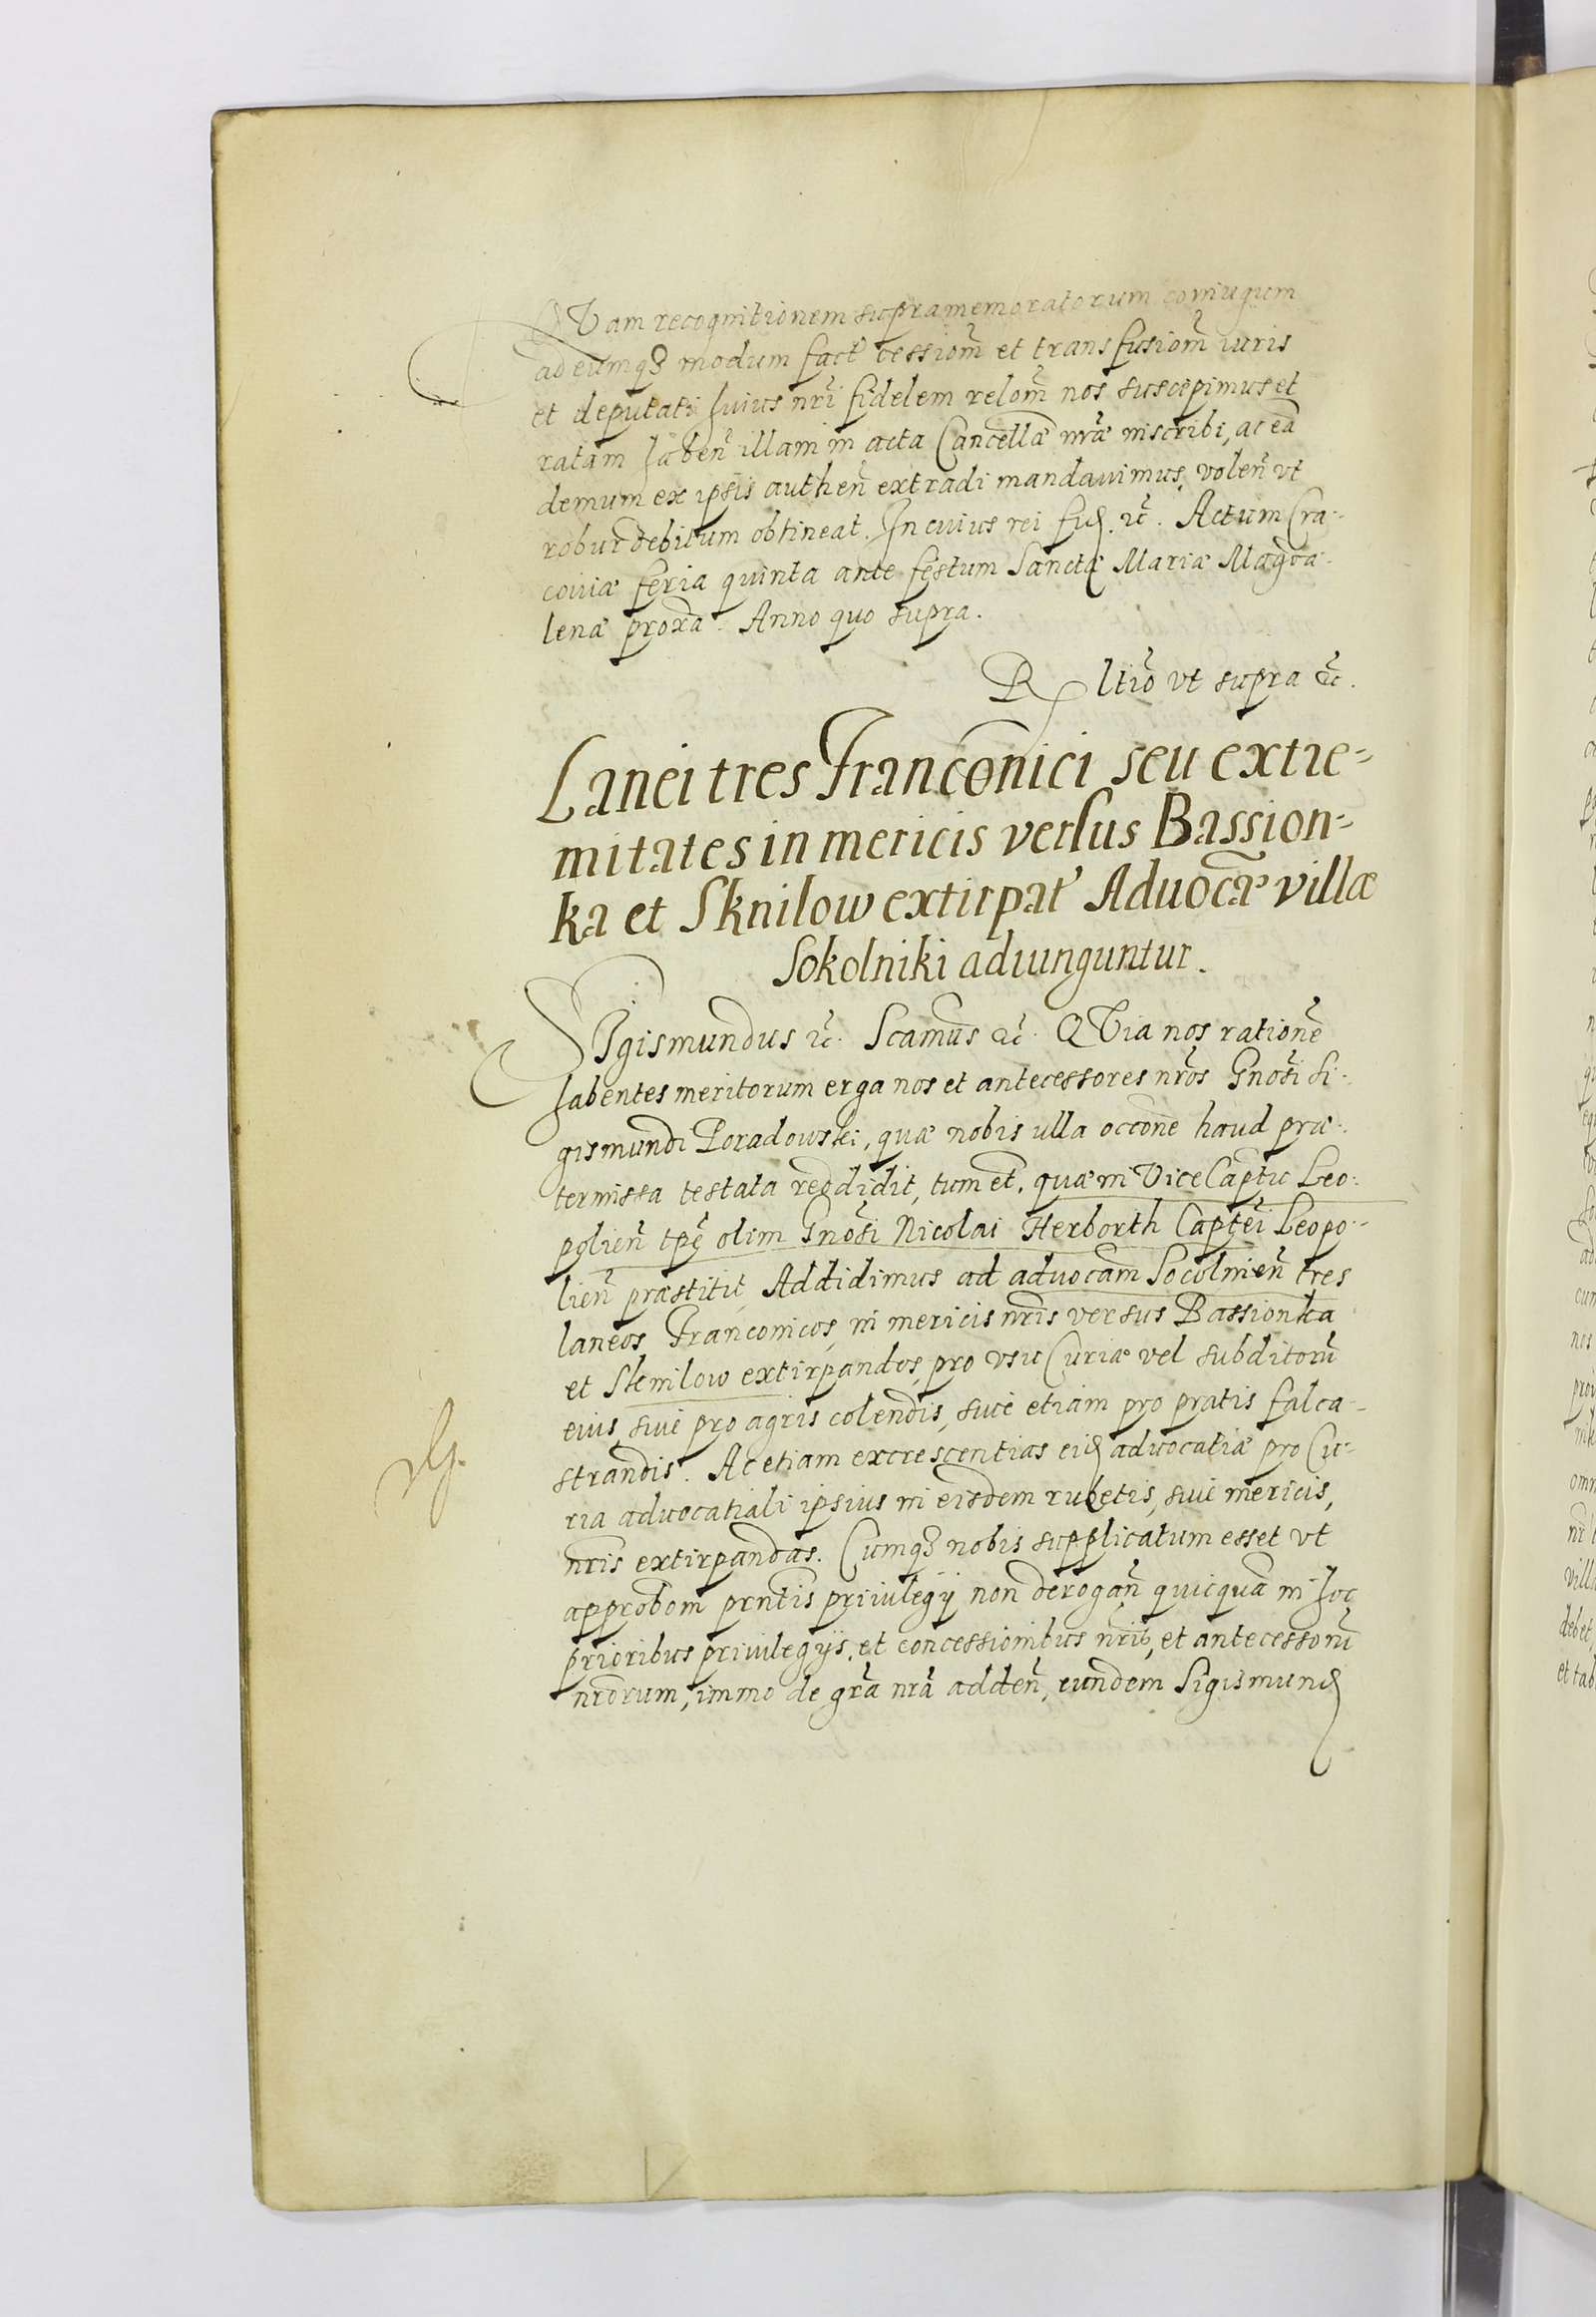 QVam recognitionem supramemoratorum coniugum
ad eumq3 modum fact̃ cessiom̃ et transfusiom̃ iuris
et deputati huius nr̃i fidelem relom̃ nos suscepimus et
ratam haben̄ illam in acta Cancellæ nr̃æ inscribi, ac eã
demum ex ipsis authen̄ extradi mandauimus, volen̄ vt
robur debitum obtineat. In cuius rei fid. ꝛc̃. Actum Cra-
couiæ feria quinta ante festum Sanctæ Mariæ Magda-
lenæ proxã. Anno quo supra.
R ltiõ vt supra ꝛc̃.
Lanei tres Franconici seu extre-
mitates in mericis versus Bassion-
ka et Sknilow extirpat̃ Aduocãæ villæ
Sokolniki adiunguntur.
SIgismundus ꝛc̃. Scamus ꝛc̃. QVia nos rationẽ
habentes meritorum erga nos et antecessores nr̃os Gnos̃i Si-
gismundi Poradowski, quæ nobis ulla occõne haud præ-
termissa testata reddidit, tum et̃, quæ in Vice Capt̃u Leo-
polien̄ tp̃e olim Gnos̃i Nicolai Herborth Capt̃ei Leopo-
lien̄ præstitit, Addidimus ad aduocam̃ Socolnien̄ tres
laneos Franconicos, in mericis nr̃is versus Bassionka
et Sknilow extirpandos, pro vsu Curiæ vel subditorũ
eius, siue pro agris colendis, siue etiam pro pratis falca-
strandis. Ac etiam excrescentias eid aduocatiæ pro Cu-
ria aduocatiali ipsius in eisdem rubetis, siue mericis,
nr̃is extirpandas. Cumq3 nobis supplicatum esset vt
approbom̃ prñtis priuilegij non derogan̄ quicquã in hoc
prioribus priuilegijs, et concessionibus nr̃is, et antecessorũ
nr̃orum, immo de gr̃a nr̃a adden̄, eundem Sigismund